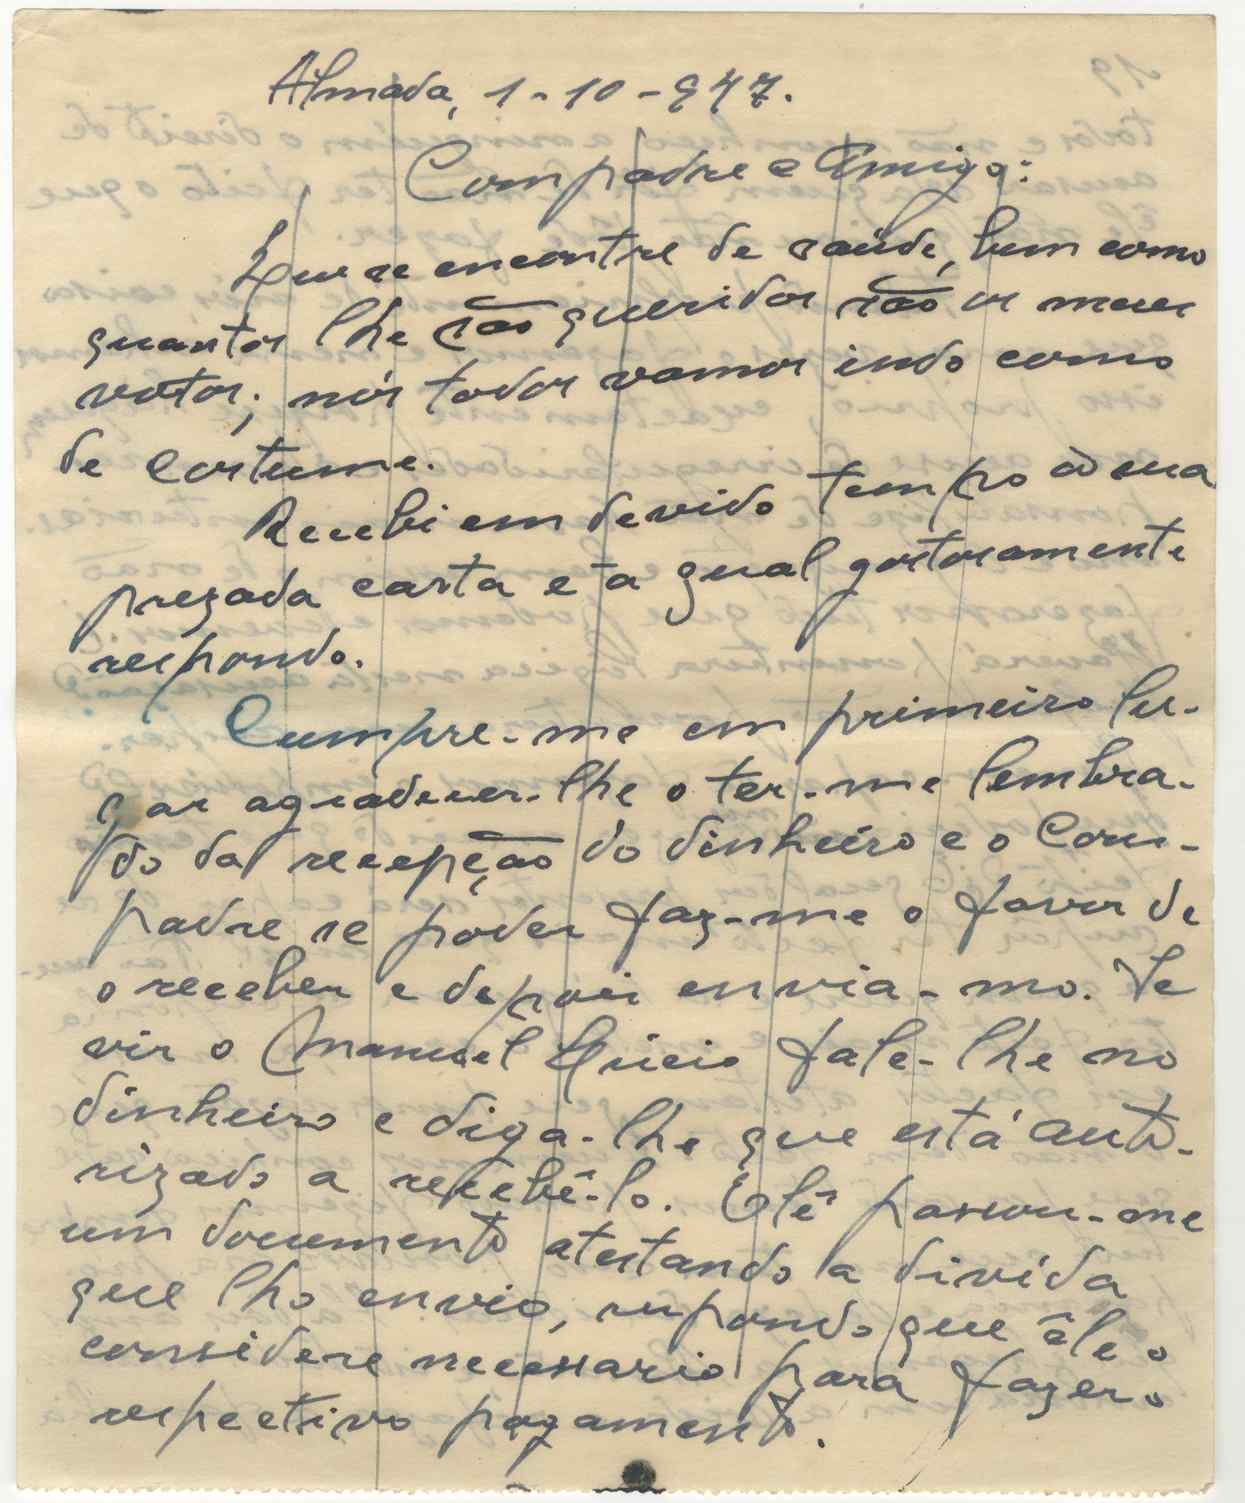 Almada, 1-10-947.
Compadre e Amigo:
Que se encontre de saúde, bem como
quantos lhe são queridos são os meus
votos; nós todos vamos indo como
de costume.
Recebi em devido tempo a sua
prezada carta e à qual gostosamente
respondo.
Cumpre-me em primeiro lu-
gar agradecer-lhe o ter-me lembra-
do da recepção do dinheiro e o Com-
padre se poder faz-me o favor de
o receber e depois envia-mo. Se
vir o Manuel Lúcio fale-lhe no
dinheiro e diga-lhe que está auto-
rizado a recebê-lo. Êle passou-me
um documento atestando a divída
que lho envio, supondo que êle o
considere necessario para fazer o
respectivo pagamento.